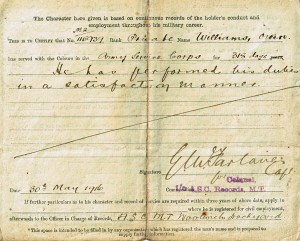 The Character here given is based on continuous records of the holder's conduct and
employment throughout his military career.
This is to Certify that No. M2/ Rank Private Name Williams,
has served with the Colours in the Army Service Corps for days
He has performed his duties
in a satisfactory manner.
Signature
Capt
Colonel,
A.S.C. Records, M.T.
Date 30th May 1916
If further particulars as to his character and record of service are required within three years of above date, apply to
where he is registered for civil employment,
afterwards to the Officer in Charge of Records, A.S.C. M.T. Woolwich Dockyard
*This space is intended to be filled in by any organization which has registered the man's name and is prepared to
supply further information.